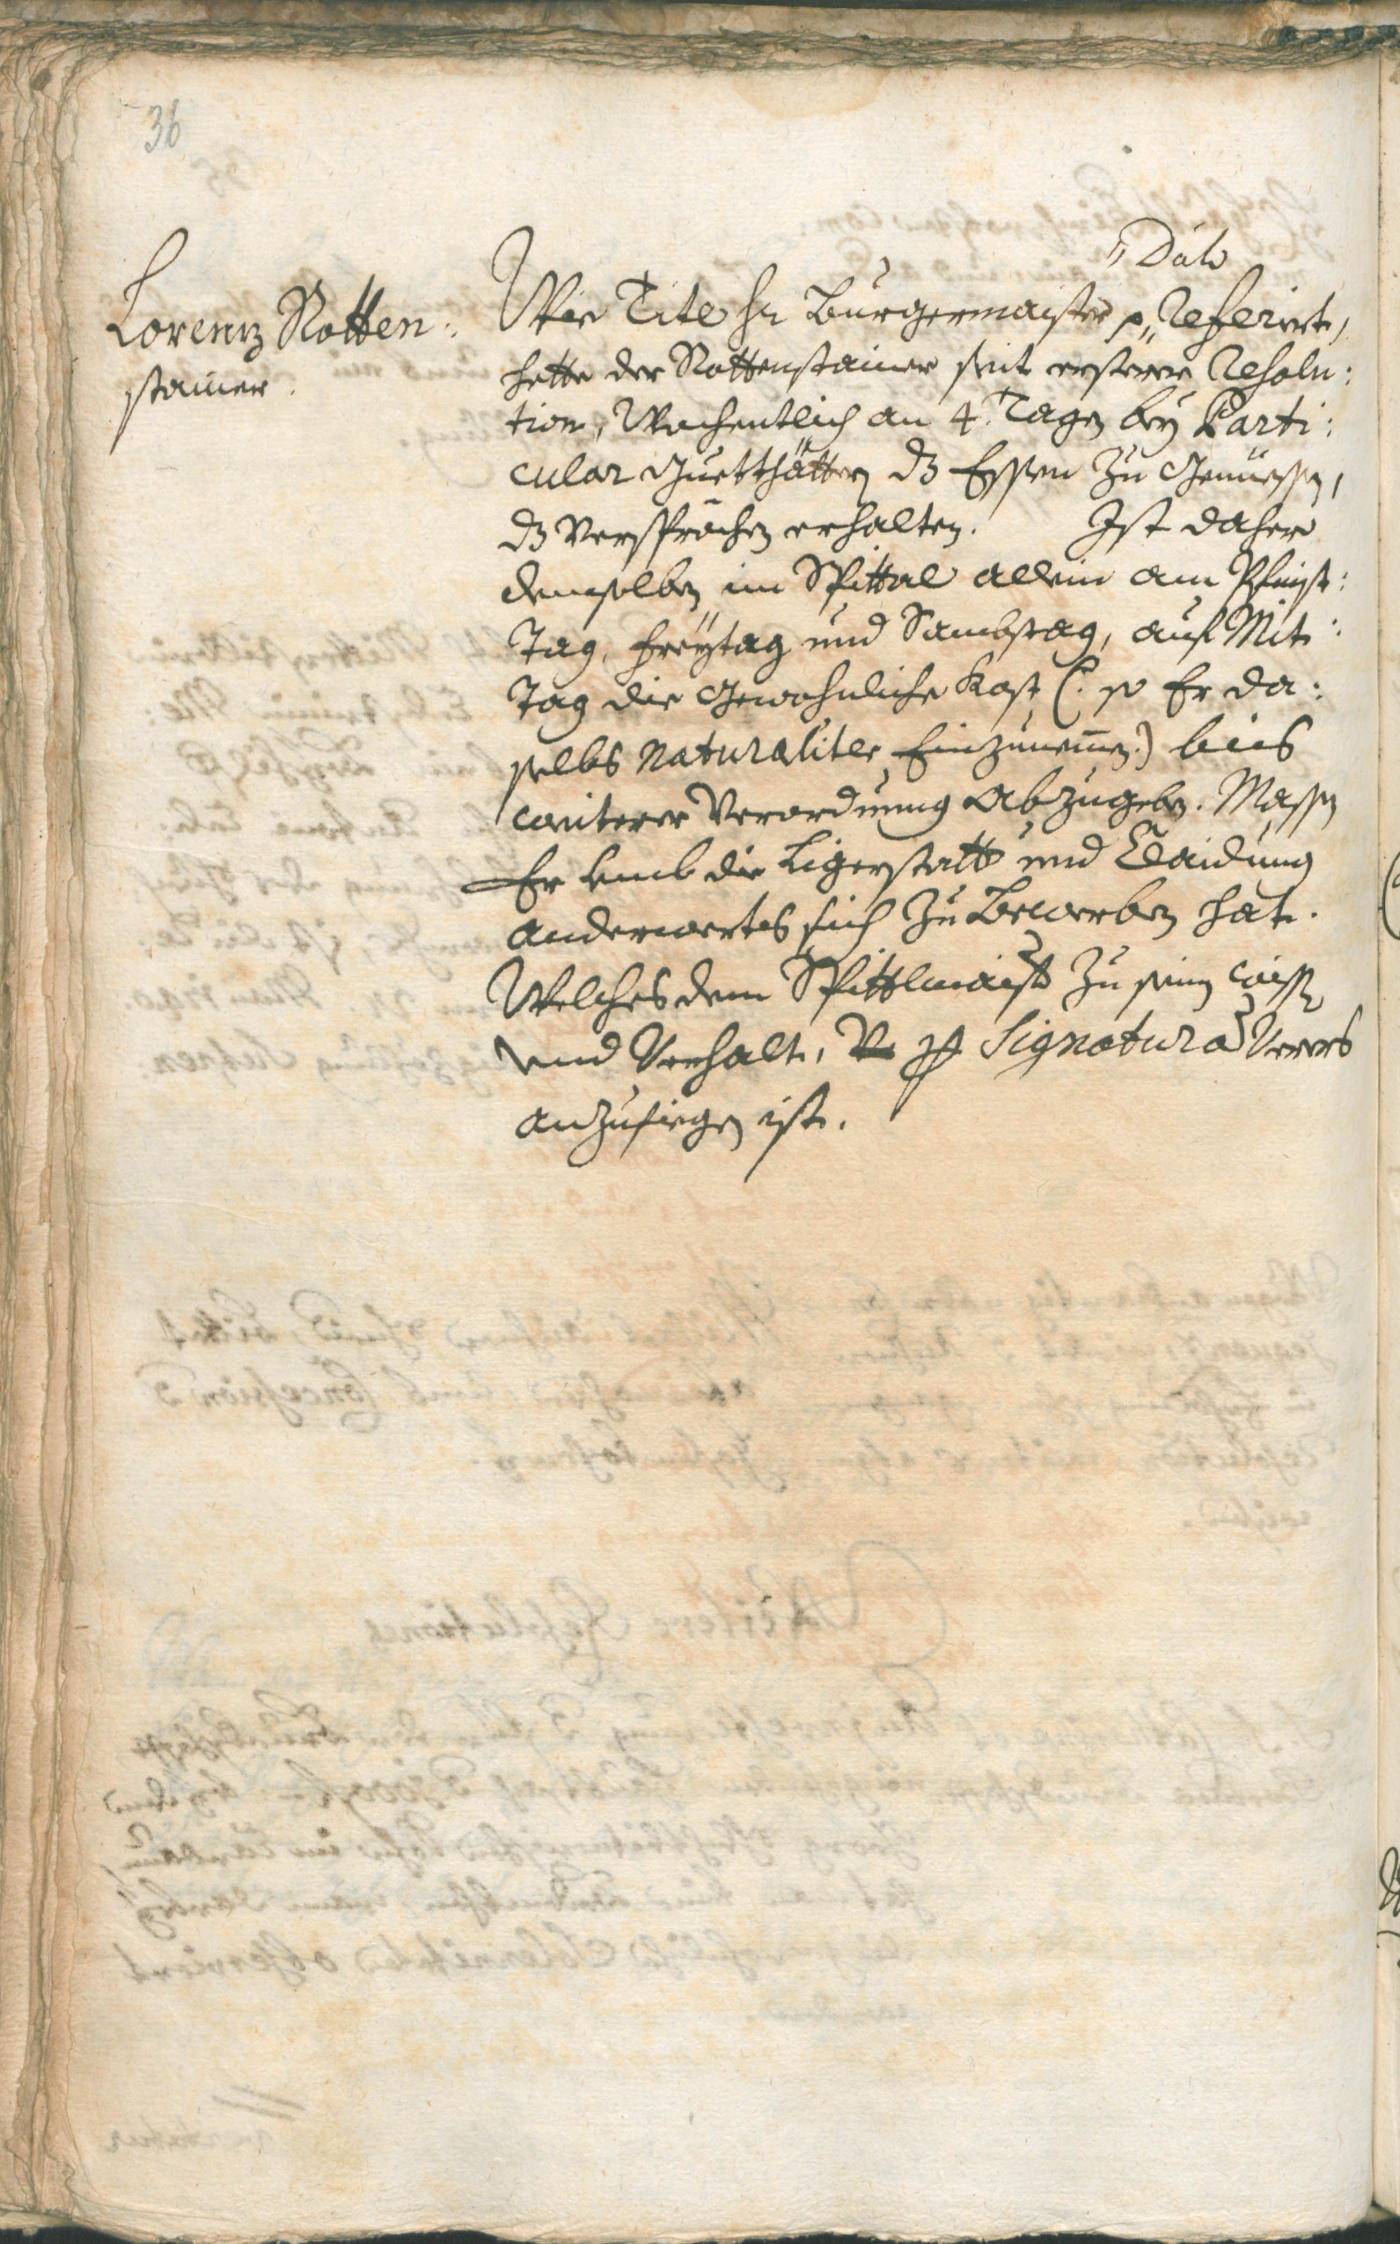 36
Lorennz Rotten:
stainer.
"Dato
Wie Title Hr Burgermaister p" Referirte,
hette der Rottenstainer seit ersterer Resolu:
tion, Wochentlich an 4. Tagen bey Parti:
cular Guetthätter dz Essen zu Geniessen,
dz Versprächen erhalten. Ist daher
demselben im Spittal allein am Pfingst:
Tag, Freytag und Sambstag, auf Mit:
Tag die Gewohnliche Kost (: so Er da:
selbs Naturaliter Einzunemen:) biss
weiterer Verordnung Abzugeben. Massen
Er umb die Ligerstatt und Claidung
anderwerts sich zu Bewerben hat.
Welches dem Spittlmaister zu seinen
und Verhalt, Signatura
anzufiegen ist.